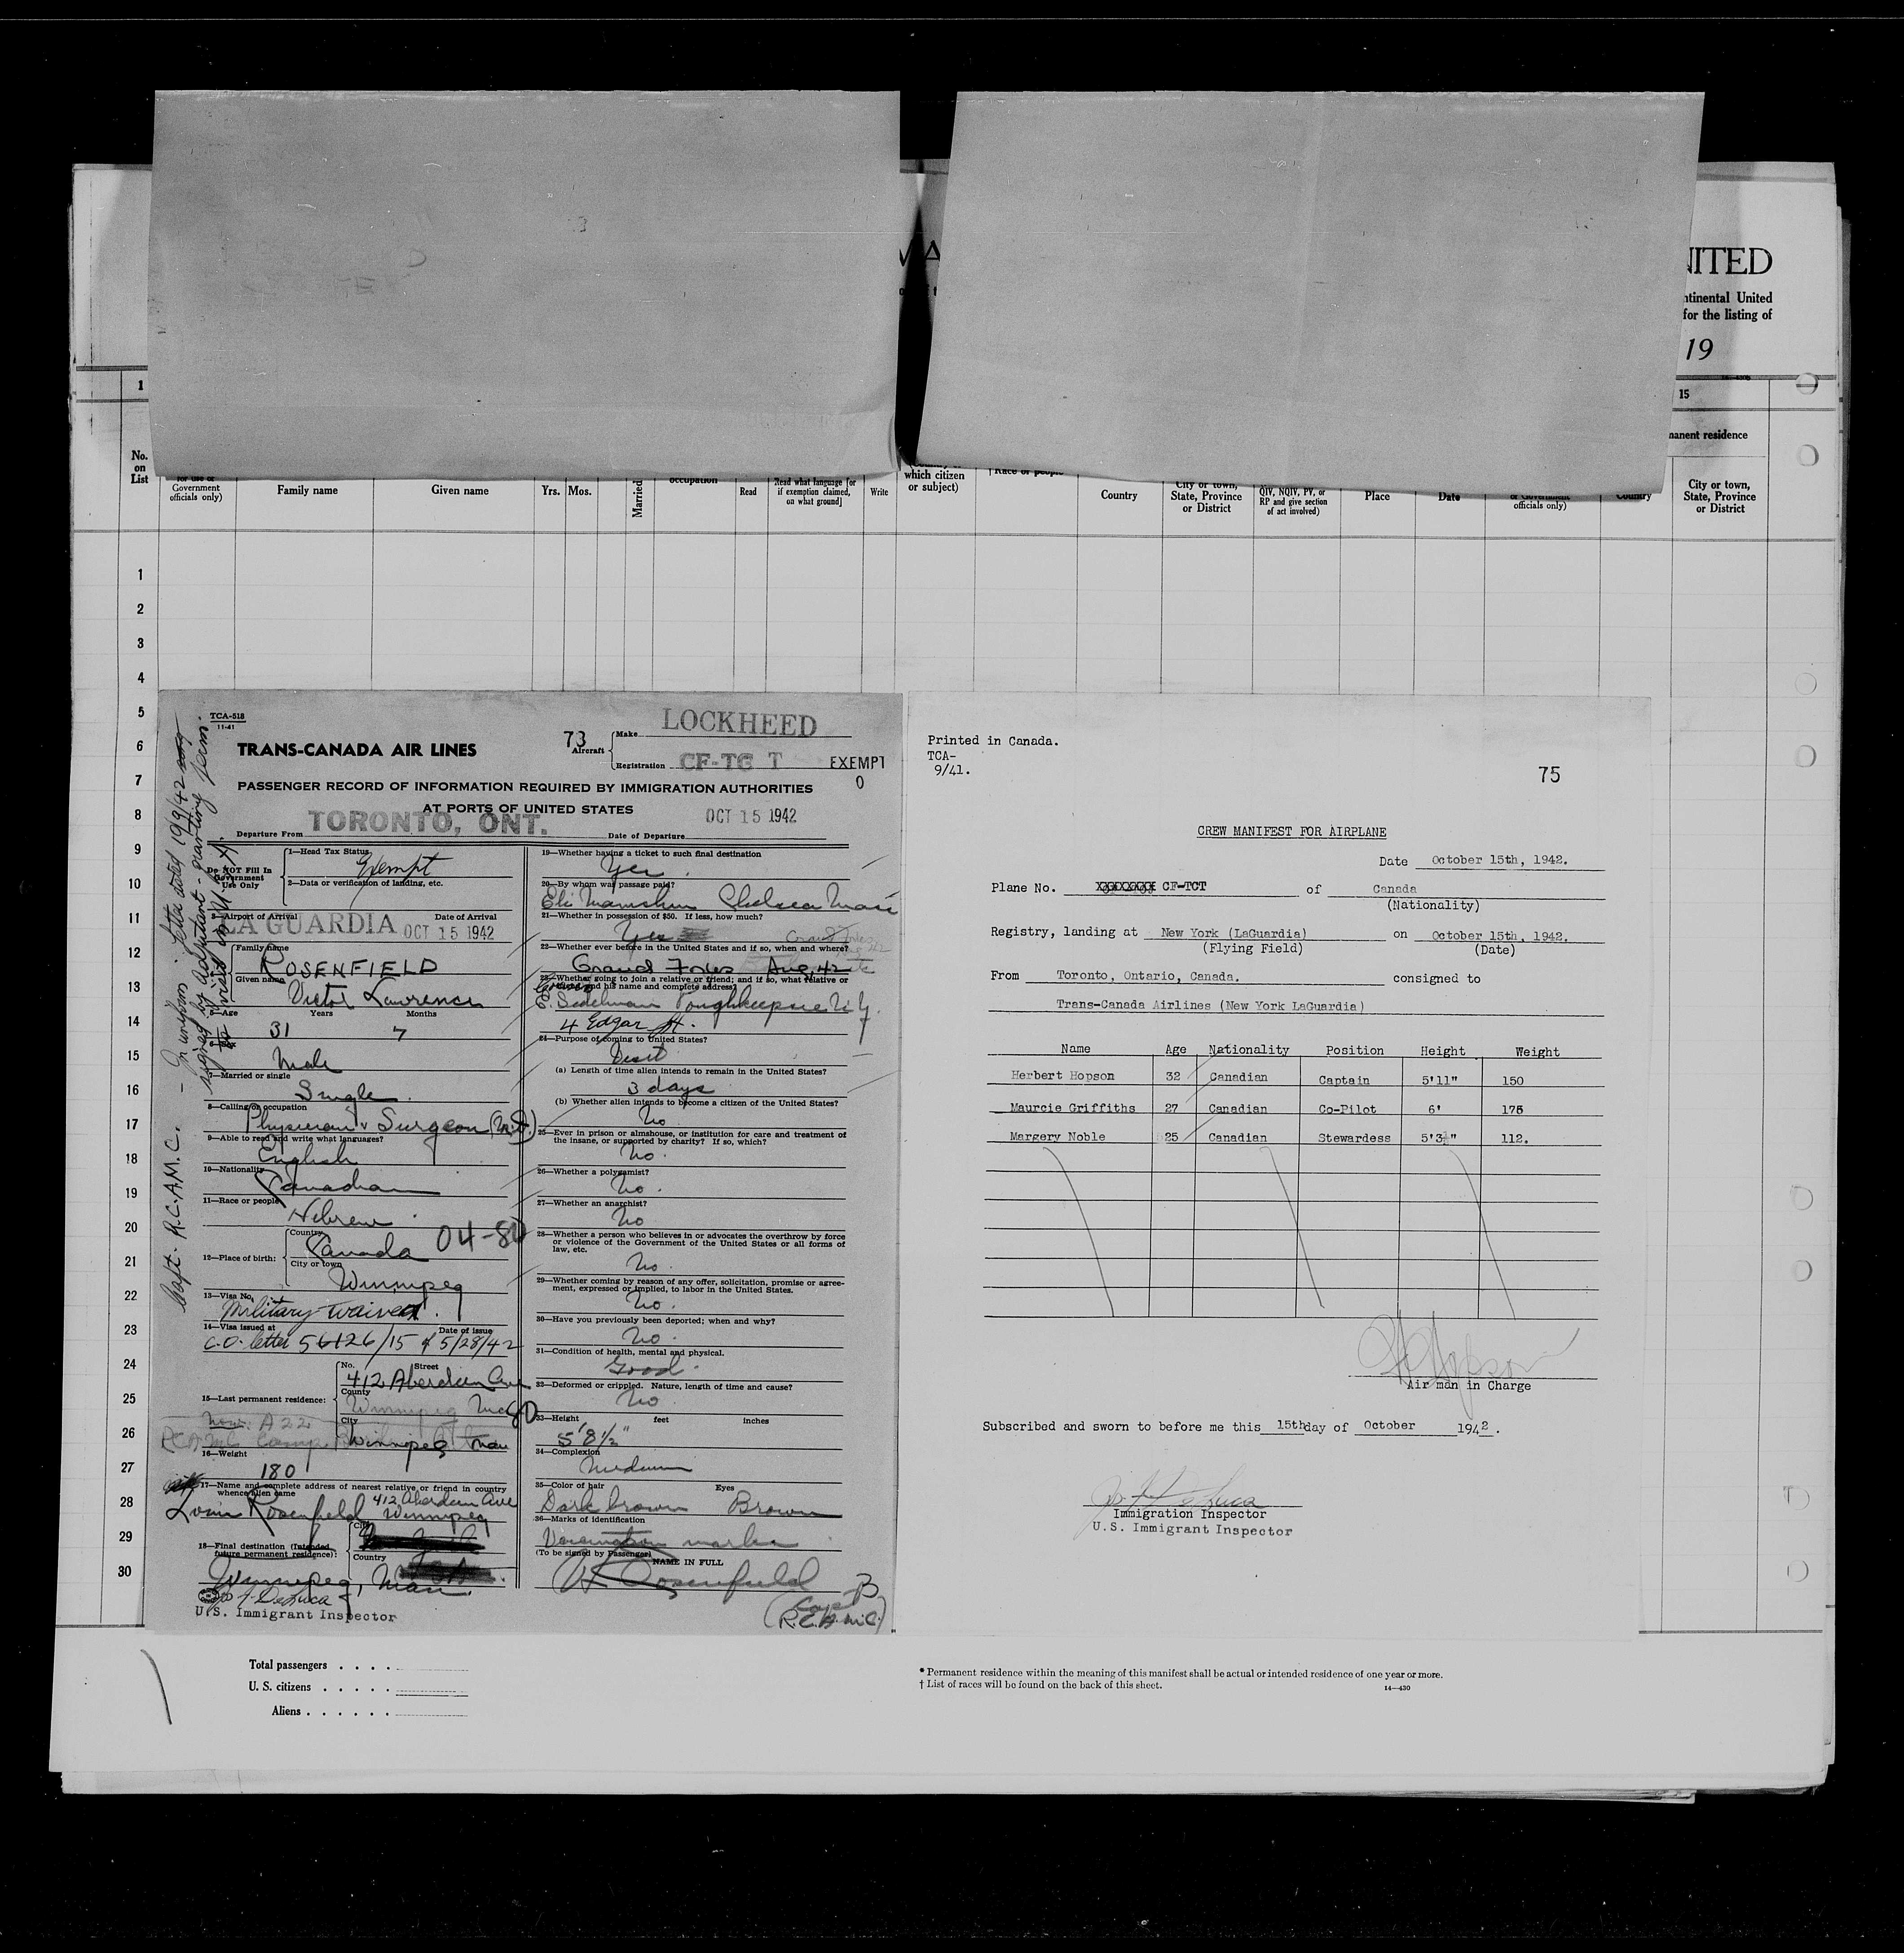 NITED
ntinental United
for the listing of
19
1
15
manent residence
No.
on
List
Government
officials only)
Family name
Given name
Yrs.
Mos.
Married
occupation
Read
Read what language [or
if exemption claimed,
on what ground]
Write
which citizen
or subject)
Country
City or town,
State, Province
or District
QIV, NQIV, PV, or
RP and give section
of act involved)
Place
Date
officials only)
Country
City or town,
State, Province
or District
1
2
3
4
5
6
7
8
9
10
11
12
13
14
15
16
17
18
19
20
21
22
23
24
25
26
27
28
29
30
TCA-518
11-41
TRANS-CANADA AIR LINES
73
Aircraft
Make LOCKHEED
Registration CF-TC T
EXEMPT
0
PASSENGER RECORD OF INFORMATION REQUIRED BY IMMIGRATION AUTHORITIES
AT PORTS OF UNITED STATES
Departure From TORONTO, ONT.
Date of Departure OCT 15 1942
Do NOT Fill In
Government
Use Only
1—Head Tax Status
Exempt
2—Data or verification of landing, etc.
3—Airport of Arrival LA GUARDIA
Date of Arrival OCT 15 1942
Family name
ROSENFIELD
Given name
Victor Lawrence
5—Age Years Months
31 7
6—Sex
Male
7—Married or single
Single
8—Calling or occupation
Physician & Surgeon (M.D.)
9—Able to read and write what languages?
English
10—Nationality
Canadian
11—Race or people
Hebrew
04-80
12—Place of birth:
Country
Canada
City or town
Winnipeg
13—Visa No.
Military-waived
14—Visa issued at Date of issue
C.O. letter 56126/15 of 5/28/42
15—Last permanent residence:
No. Street
412 Aberdeen Ave
County
Winnipeg
City
Winnipeg Man
Now: A22
R.C.A.M.C. Camp
16—Weight
180
17—Name and complete address of nearest relative or friend in country
whence alien came
Rosenfield 412 Aberdeen Ave
Winnipeg
18—Final destination (Intended
future permanent residence):
City
Country
Winnipeg, Man.
U.S. Immigrant Inspector
Capt. R.C.A.M.C. - In uniform. letter dated
signed by Adjutant - granting perm.
to visit in U.S.A.
19—Whether having a ticket to such final destination
Yes
20—By whom was passage paid?
Eli Chelsea Mass
21—Whether in possession of $50. If less, how much?
Yes
22—Whether ever before in the United States and if so, when and where?
Grand Forks Aug. 42
23—Whether going to join a relative or friend; and if so, what relative or
friend and his name and complete address?
Cousin
Poughkeepsie N.Y.
4 Edgar St.
24—Purpose of coming to United States?
Visit
(a) Length of time alien intends to remain in the United States?
3 days
(b) Whether alien intends to become a citizen of the United States?
No
25—Ever in prison or almshouse, or institution for care and treatment of
the insane, or supported by charity? If so, which?
No.
26—Whether a polygamist?
No.
27—Whether an anarchist?
No
28—Whether a person who believes in or advocates the overthrow by force
or violence of the Government of the United States or all forms of
law, etc.
No.
29—Whether coming by reason of any offer, solicitation, promise or agree-
ment, expressed or implied, to labor in the United States.
No.
30—Have you previously been deported; when and why?
No.
31—Condition of health, mental and physical.
Good
32—Deformed or crippled. Nature, length of time and cause?
No
33—Height feet inches
5' 8½"
34—Complexion
Medium
35—Color of hair Eyes
Dark brown Brown
36—Marks of identification
Vaccination marks
(To be signed by Passenger)
NAME IN FULL
Rosenfield
Capt
(R.C.A.M.C.)
Printed in Canada.
TCA-
9/41.
75
CREW MANIFEST FOR AIRPLANE
Date October 15th, 1942.
Plane No. CF-TCT of Canada
(Nationality)
Registry, landing at New York (LaGuardia) on October 15th, 1942.
(Flying Field) (Date)
From Toronto, Ontario, Canada. consigned to
Trans-Canada Airlines (New York LaGuardia)
Name Age Nationality Position Height Weight
Herbert Hopson 32 Canadian Captain 5'11" 150
Maurcie Griffiths 27 Canadian Co-Pilot 6' 175
Margery Noble 25 Canadian Stewardess 5'3½" 112.
Air man in Charge
Subscribed and sworn to before me this 15th day of October 1942.
Immigration Inspector
U.S. Immigrant Inspector
Total passengers
U. S. citizens
Aliens
* Permanent residence within the meaning of this manifest shall be actual or intended residence of one year or more.
† List of races will be found on the back of this sheet.
14—430